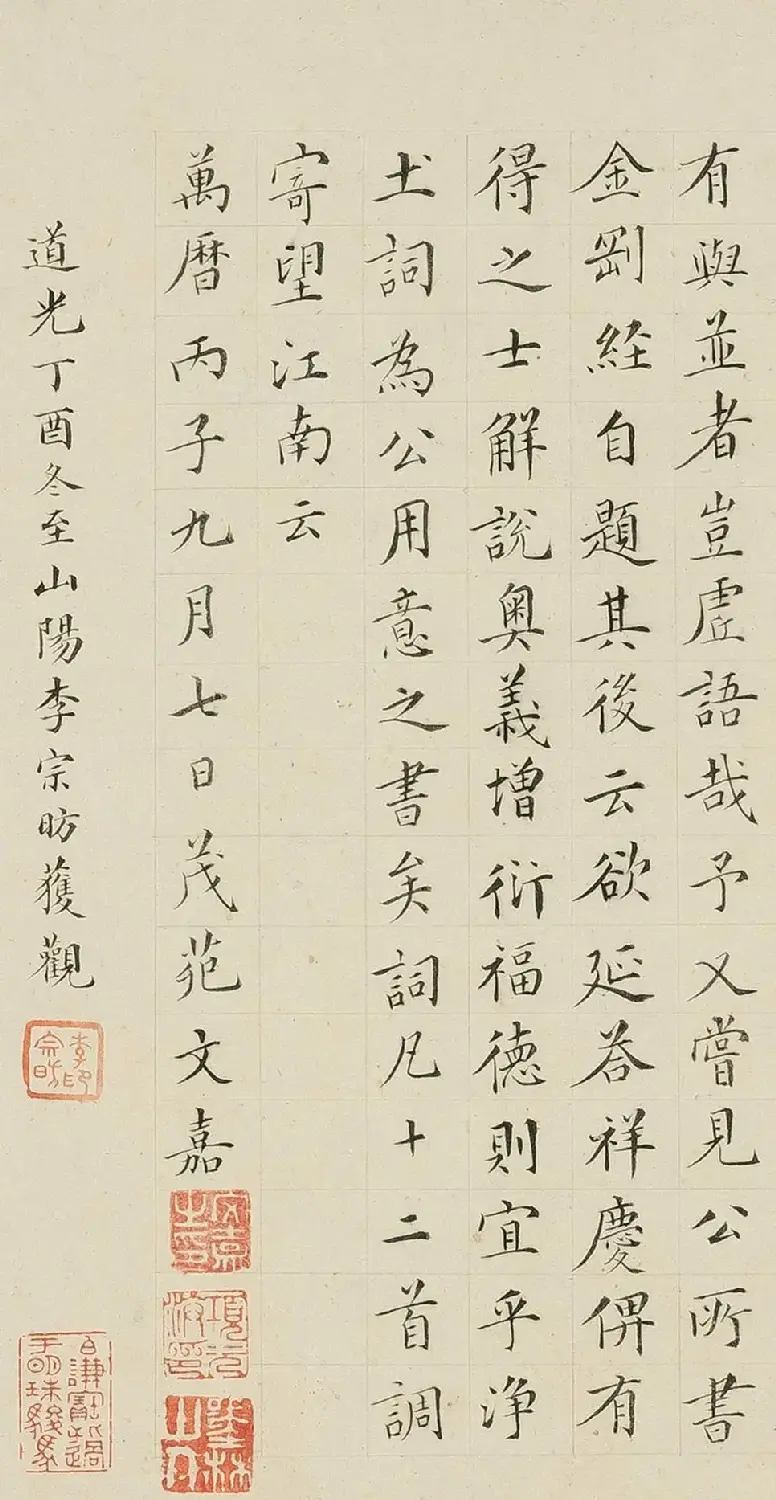 有與並者豈虛語哉予又嘗見公所書
金剛経自題其後云欲延荅祥慶俾有
得之士解說奧義增衍福德則宜乎淨
土詞為公用意之書矣詞凡十二首調
寄望江南云
萬曆丙子九月七日茂苑文嘉
道光丁酉冬至山陽李宗昉獲觀
李宗昉印
項元汴印